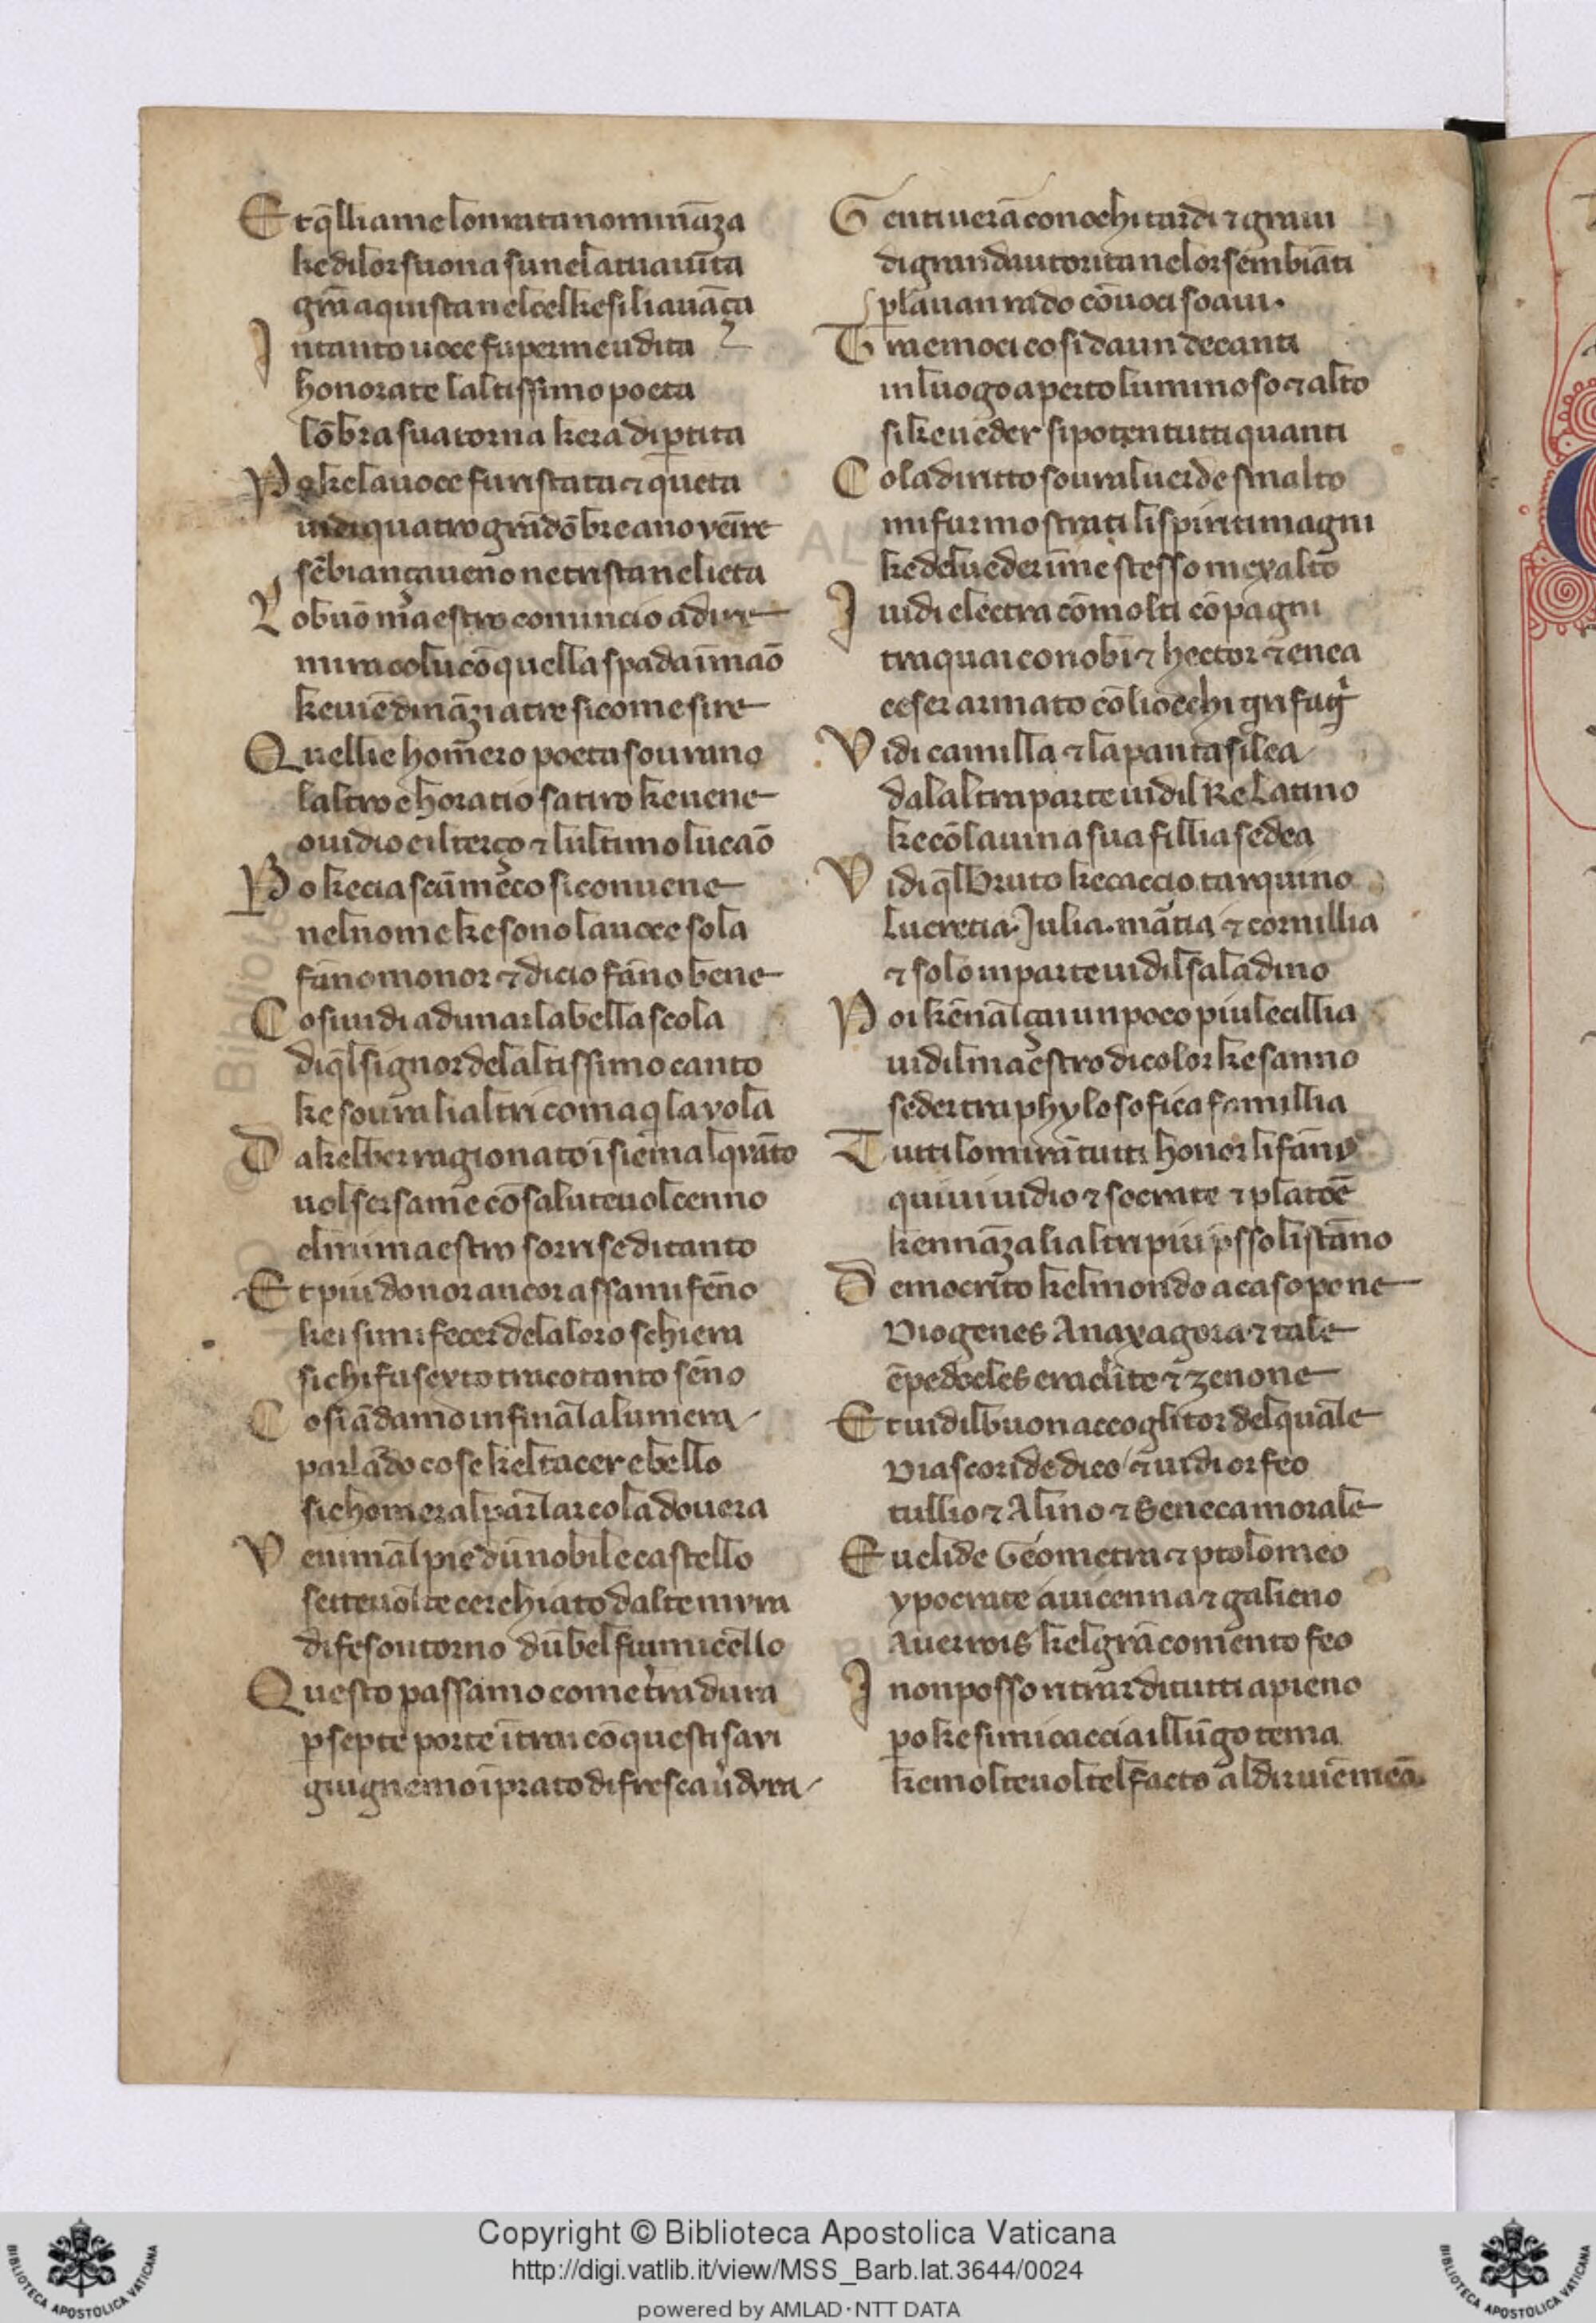 Et q̄lli a me lonrata nomināza
ke di lor suona su nela tua uita
grā aquista nel cel ke si li auāça
Intanto uoce fu per me udita
honorate laltissimo poeta
lōbra sua torna kera dip̄tita
Poi ke la uoce fu ristata ⁊ queta
uidi quatro grādōbre a noi venire
sēbiança ueno ne trista ne lieta
Lo buō maestro comincio a dire
mira colui cō quella spada ī māo
ke uiē dināzi a tre si come sire
Quelli e homero poeta sourano
laltro e horatio satiro ke uene
ouidio e il terço ⁊ lultimo lucāo
Po ke ciascū meco si conuene
nel nome ke sono la uoce sola
fānomi honor ⁊ di cio fāno bene
Cosi uidi adunar la bella scola
di q̄l signor del altissimo canto
ke soura li altri com aq̄la vola
Da kebber ragionato īsieme alquāto
uolsersi a me cō saluteuol cenno
el mi maestro sorrise di tanto
Et piu donor ancor assa mi fēno
kei si mi fecer dela loro schiera
si chi fu sexto tra cotanto sēno
Cosi ādamo infinal a lumera
parlādo cose kel tacer e bello
si chomera l parlar cola douera
Venimal pie dū nobile castello
sette uolte cerchiato dalte mvra
difeso ītorno dū bel fiumicello
Questo passamo come tra dura
p septe porte ītrai cō questi savi
guignemo ī prato di fresca ūdvra
Genti uerā con ochi tardi ⁊ graui
di grandautorita ne lor sembiāti
parlauan rado cō uoci soaui.
Traemoci cosi da un de canti
in luogo aperto luminoso ⁊ alto
si ke ueder si poten tutti quanti
Cola diritto soural uerde smalto
mi fur mostrati li spiriti magni
ke del uedere ī me stesso mexalto
I uidi electra cō molti cōpagni
tra quai conobi ⁊ hector ⁊ enea
ceser armato cō li occhi grifagi
Vidi camilla ⁊ la pantasilea
dalaltra parte uidil Re Latino
ke cō lauina sua fillia sedea
Vidi q̄l Bruto ke caccio tarquino
lucretia. Julia. mātia, ⁊ cornillia
⁊ solo in parte uidil saladino
Poi kēnalçai un poco piu le cillia
uidil maestro di color ke sanno
seder tra phylosofica famillia
Tutti lo mirā tutti honor li fāno
quiui uidio ⁊ socrate ⁊ platōe
kennāza li altri piu p̄sso li stāno
Democrito kel mondo a caso pone
Diogenes Anaxagora ⁊ tale
ēpedocles eraclite ⁊ zenone
Et uidil buon accoglitor del quale
Diascoride dico ⁊ uidi orfeo
tullio ⁊ Alino ⁊ Seneca morale
Euclide Geometra ⁊ ptolomeo
ypocrate auicenna ⁊ galieno
Auerrois kel grā comento feo
I non posso ritrar di tutti a pieno
po ke si mi caccia il lūgo tema
ke molte uolte l facto al dir uiē meā.
Copyright © Biblioteca Apostolica Vaticana
http://digi.vatlib.it/view/MSS_Barb.lat.3644/0024
powered by AMLAD·NTT DATA